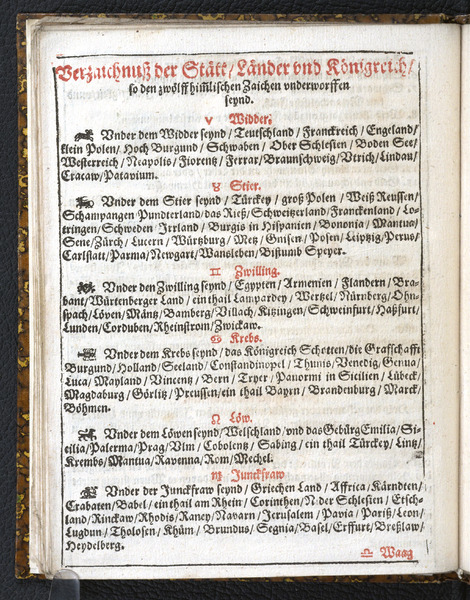 Verzaichnuß der Stätt/Länder vnd Königreich/
so den zwölff himlischen Zaichen vnderworffen
seynd.
♈ Widder.
Vnder dem Widder seynd/Teutschland/Franckreich/Engeland/
klein Polen/Hoch Burgund/Schwaben/Ober Schlesien/Boden See/
Westerreich/Neapolis/Fiorentz/Ferrar/Braunschweig/Vtrich/Lindau/
Cracaw/Patavium.
♉ Stier.
Vnder dem Stier seynd/Türckey/groß Polen/Weiß Reussen/
Schampangen Punderland/das Rieß/Schweitzerland/Franckenland/Lo-
tringen/Schweden Irrland/Burgis in Hispanien/Bononia/Mantua/
Sene/Zürch/Lucern/Würtzburg/Metz/Gnisen/Posen/Leiptzig/Perus/
Carlstatt/Parma/Newgart/Wansleben/Bistumb Speyer.
♊ Zwilling.
Vnder den Zwilling seynd/Egypten/Armenien/Flandern/Bra-
bant/Würtenberger Land/ein thail Lampardey/Wertzel/Nürnberg/Ohn-
spach/Löven/Mäntz/Bamberg/Villach/Kitzingen/Schweinfurt/Haßfurt/
Lunden/Corduben/Rheinstrom/Zwickaw.
♋ Krebs.
Vnder dem Krebs seynd/das Königreich Schotten/die Grafschafft
Burgund/Holland/Seeland/Constandinopel/Thunis/Venedig/Genua/
Luca/Mayland/Vincentz/Bern/Tryer/Panormi in Sicilien/Lübeck/
Magdaburg/Görlitz/Preussen/ein thail Bayrn/Brandenburg/Marck
Böhmen.
♌ Löw.
Vnder dem Löwen seynd/Welschland/vnd das Gebürg Emilia/Si-
cilia/Palerma/Prag/Vlm/Cobolentz/Sabing/ein thail Türckey/Lintz/
Krembs/Mantua/Ravenna/Rom/Mechel.
♍ Junckfraw
Vnder der Junckfraw seynd/Griechen Land/Affrica/Kärndten/
Crabaten/Babel/ein thail am Rhein/Corinthen/N.der Schlesien/Etsch-
land/Rinckaw/Rhodis/Raney/Navarn/Jerusalem/Pavia/Pariß/Leon/
Lugdun/Tholosen/Khüm/Brundus/Segnia/Basel/Erffurt/Breßlaw/
Heydelberg.
♎ Waag